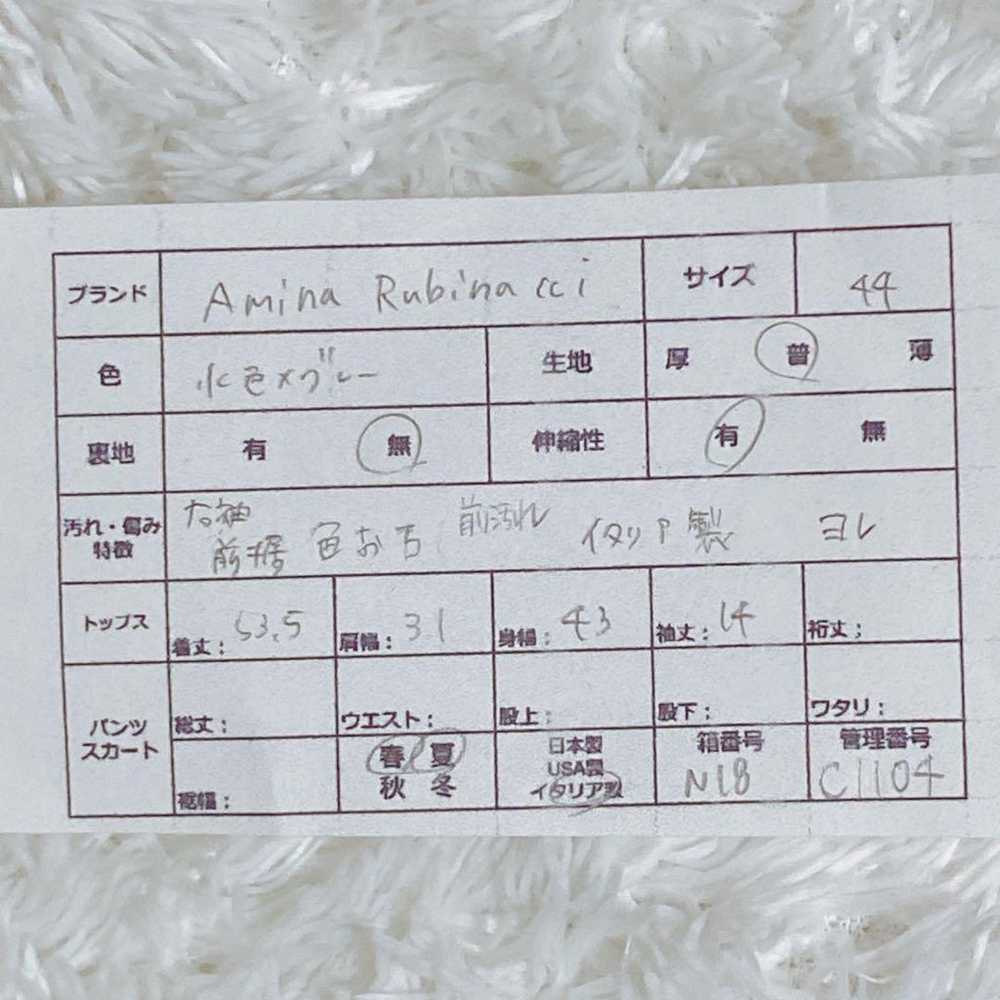 ブランド Amina Rubinacci サイズ 44
色 水色×グレー 生地 厚 普 薄
裏地 有 無 伸縮性 有 無
汚れ・傷み 特徴 右袖 前裾 色おち 前汚れ イタリア製 ヨレ
トップス 着丈: 53.5 肩幅: 31 身幅: 43 袖丈: 14 裄丈;
パンツ スカート 総丈: ウエスト: 股上: 股下: ワタリ:
裾幅: 春 夏 秋 冬 日本製 USA製 イタリア製 箱番号 N18 管理番号 C1104